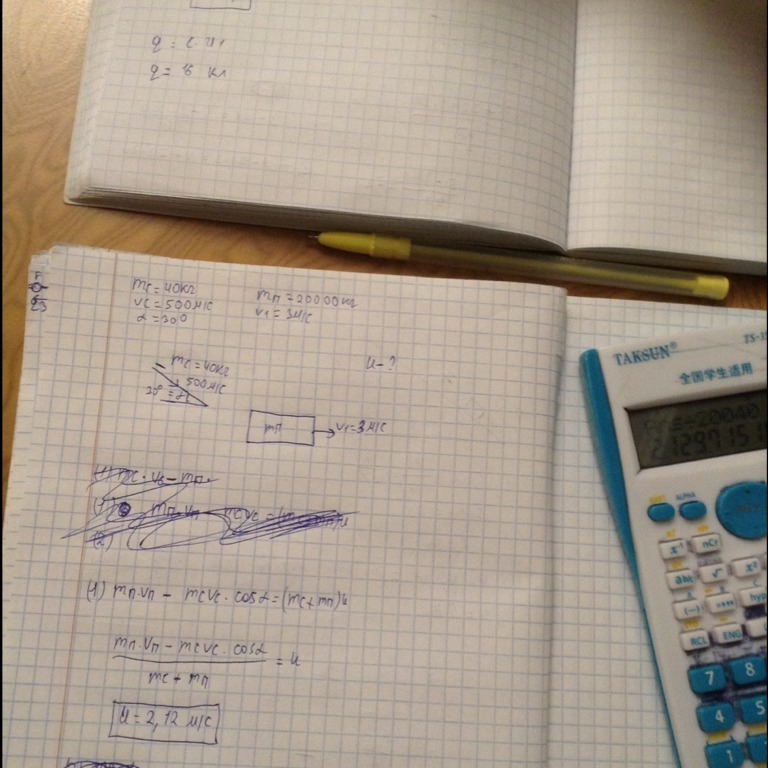 q = 16 Кл
mc = 40кг
vc = 500м/с
α = 30°
mп = 20000кг
v1 = 3м/с
mc = 40кг
500м/с
30° = α
u - ?
mп
v1 = 3 м/с
(1) mп·vп − mcvc · cosα = (mc + mп)u
mп·vп − mcvc · cosα
= u
mc + mп
u = 2,12 м/с
TAKSUN®
全国学生适用
ALPHA
x⁻¹
nCr
√
x²
(−)
hyp
RCL
ENG
7
8
4
5
1